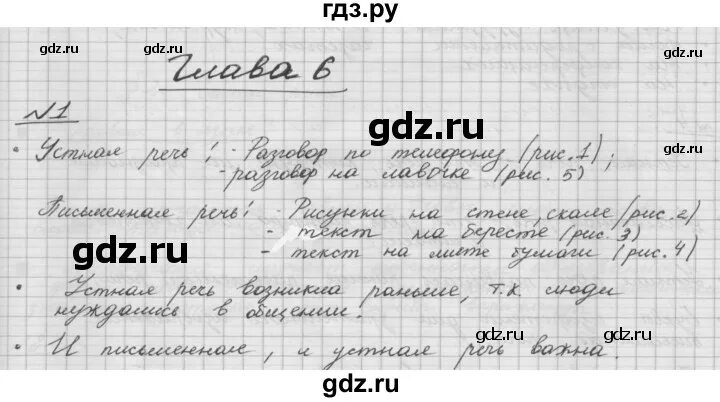 гдз.ру
gdz.ru gdz.ru gdz.ru
Глава 6
№1
gdz.ru gdz.ru
• Устная речь: - Разговор по телефону (рис. 1);
- разговор на лавочке (рис. 5)
gdz.ru gdz.ru gdz.ru
Письменная речь: - Рисунки на стене, скале (рис. 2)
- текст на бересте (рис. 3)
- текст на листе бумаги (рис. 4)
gdz.ru gdz.ru
• Устная речь возникла раньше, т.к. люди
нуждались в общении.
gdz.ru gdz.ru gdz.ru
• И письменная, и устная речь важна.
gdz.ru